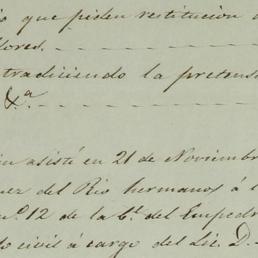 io que piden restitucion
lores.
tradiciendo la pretens
&.a
in asistí en 21 de Noviembre
uez del Rio hermanos á l
n.o 12 de la C.e del Empedr
o civil á cargo del Lic. D.